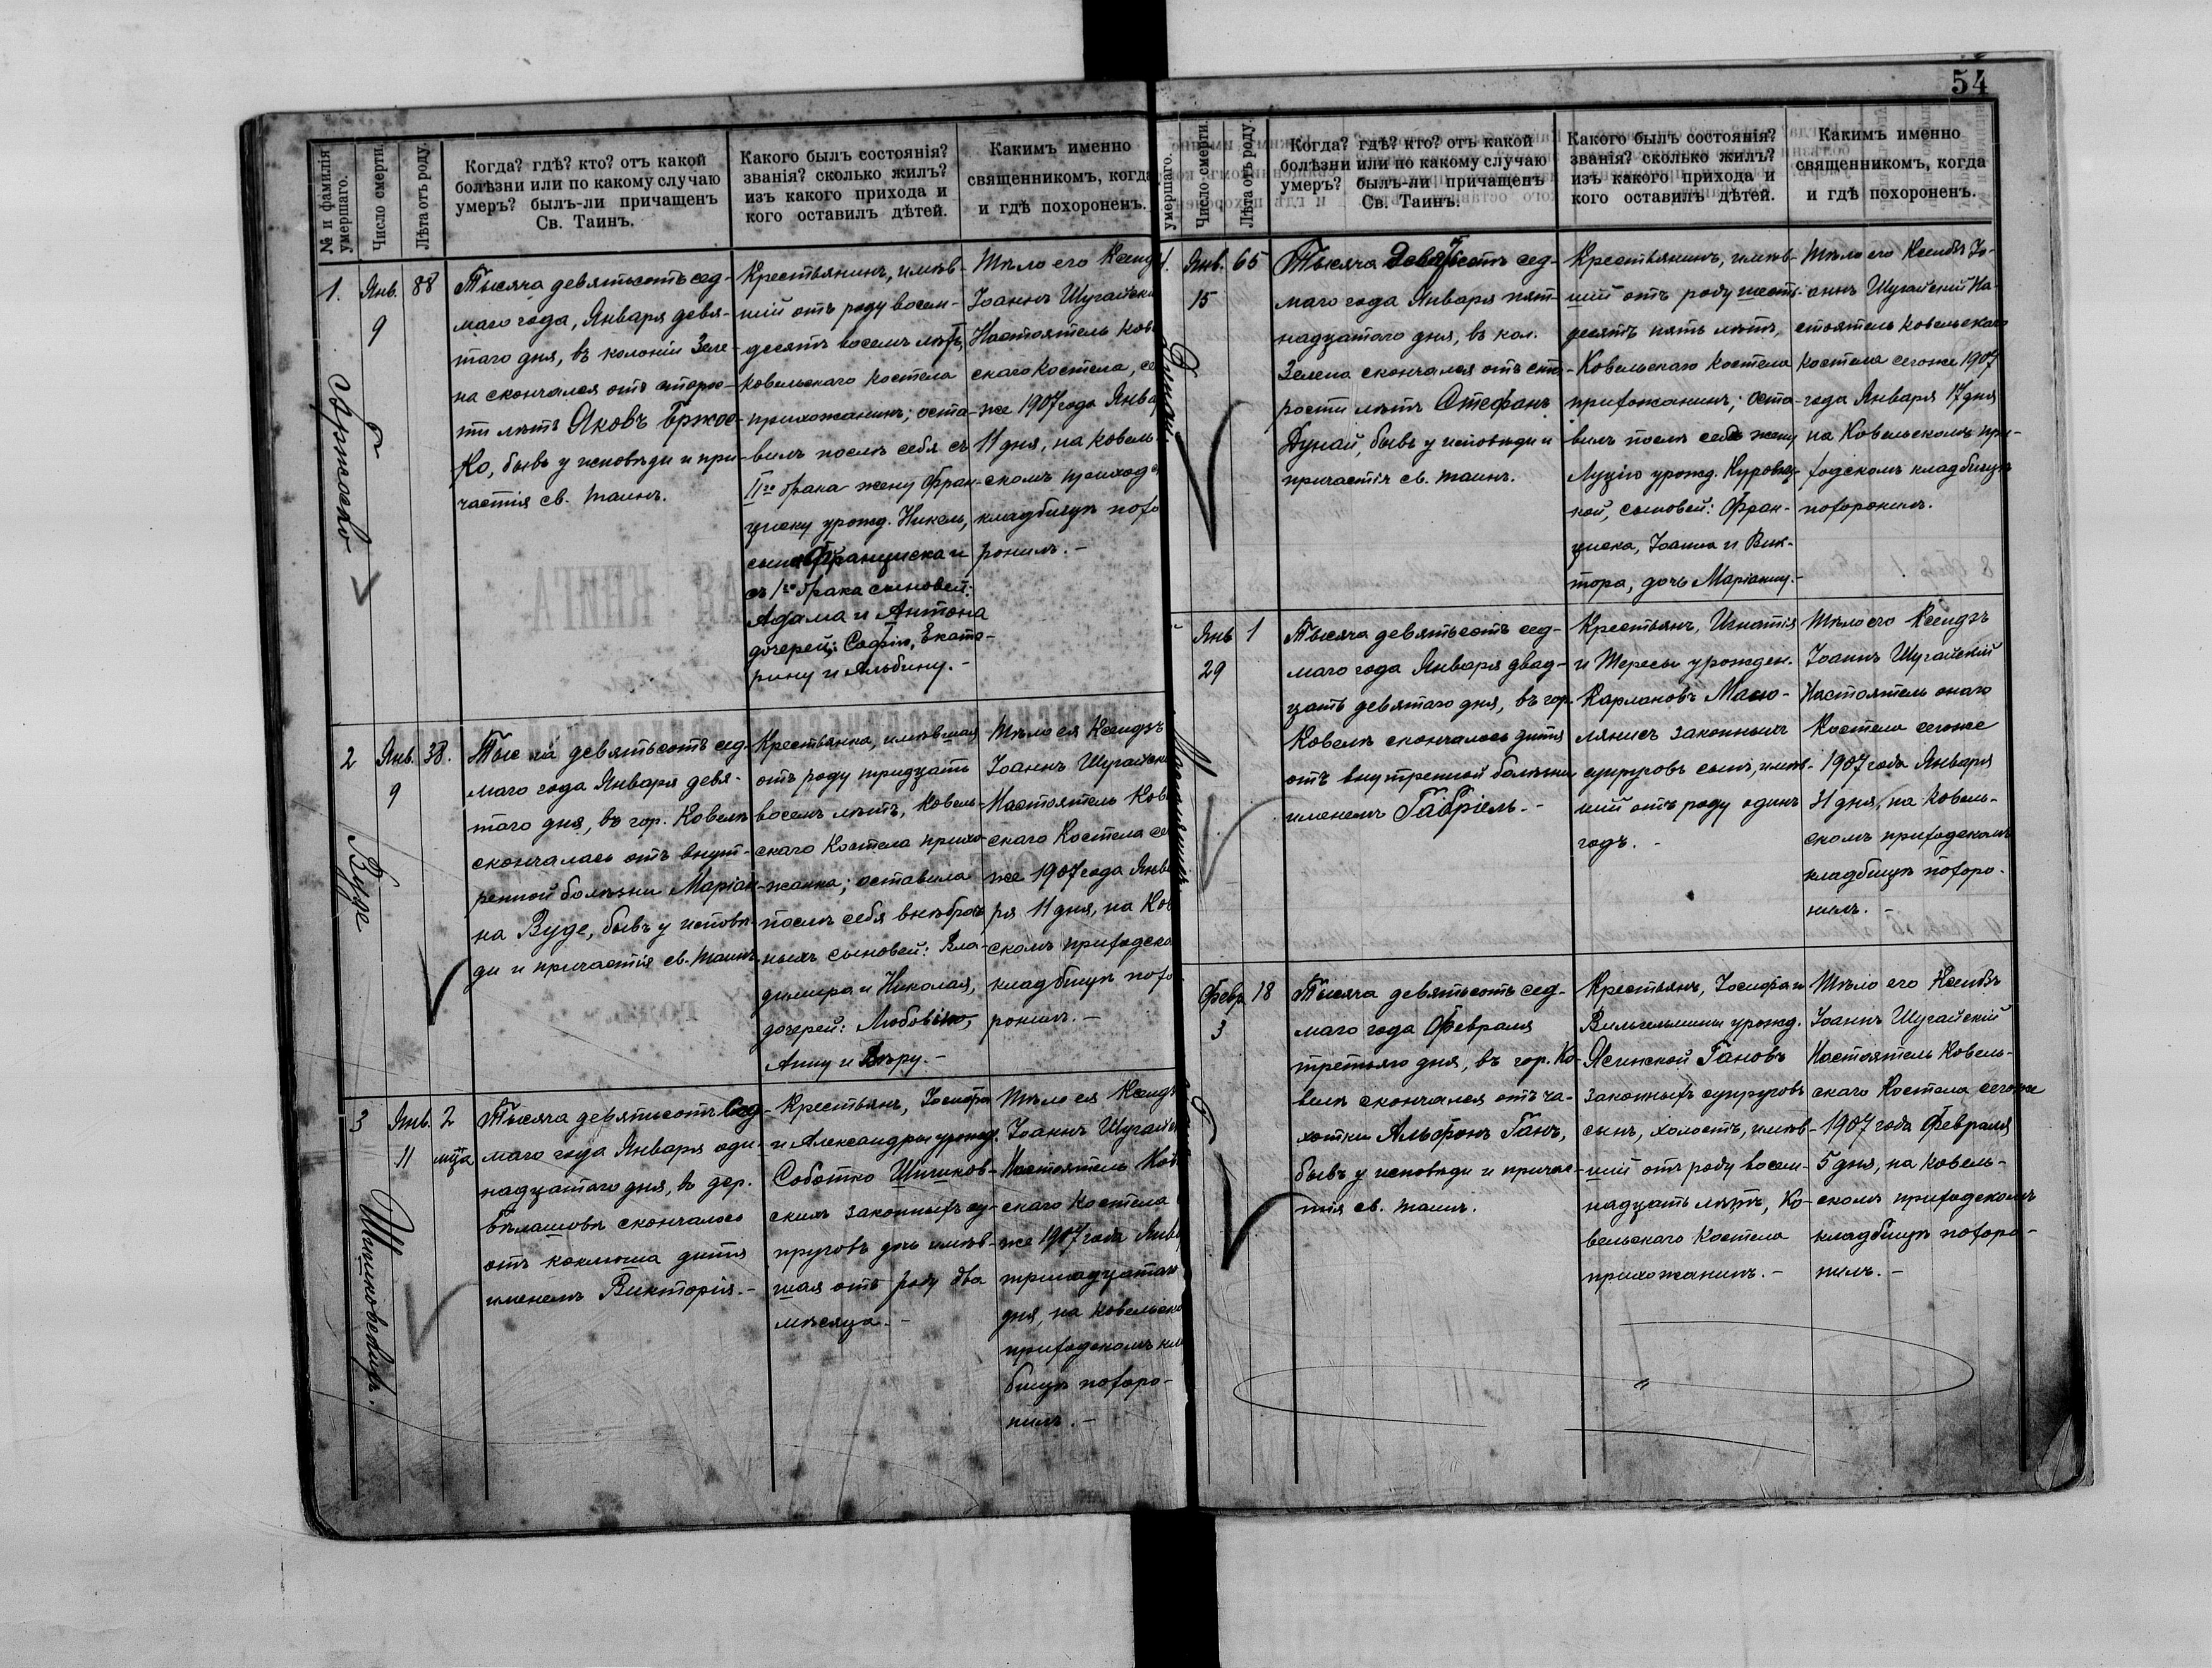 54
№ и фамилія
умершаго.
Число смерти.
Лѣта отъ роду.
Когда? гдѣ? кто? отъ какой
болѣзни или по какому случаю
умеръ? былъ-ли причащенъ
Св. Таинъ.
Какого былъ состоянія?
званія? сколько жилъ?
изъ какого прихода и
кого оставилъ дѣтей.
Какимъ именно
священникомъ, когда
и гдѣ похороненъ.
1.
Янв.
9
88
Тысяча девятьсотъ сед-
маго года, Января девя-
таго дня, въ колоніи Зеле-
на скончался отъ старос-
ти лѣтъ Яковъ Бржос-
ко, бывъ у исповѣди и при-
частія св. таинъ.
Крестьянинъ, имѣв-
шій отъ роду восем-
десятъ восемь лѣтъ,
Ковельскаго костела
прихожанинъ; оста-
вилъ послѣ себя съ
II го брака жену Фран-
циску урожд. Никель,
сына Франциска и
съ 1 го брака сыновей:
Адама и Антона
дочерей: Софію, Екате-
рину и Альбину.-
Тѣло его Ксенд
Іоаннъ Шугайск
Настоятель Ков
скаго Костела, се
же 1907 года Янва
11 дня, на Ковель-
скомъ приход
кладбищѣ похо
ронилъ.-
2
Янв.
9
38.
Вуде
Тысяча девятьсотъ сед-
маго года Января девя-
таго дня, въ гор. Ковелѣ
скончалась отъ внут-
ренной болѣзни Маріан-
на Вуде, бывъ у исповѣ-
ди и причастія св. таинъ.
Крестьянка, имѣвшая
отъ роду тридцать
восемь лѣтъ, Ковель-
скаго Костела прихо-
жанка; оставила
послѣ себя внѣбрач
ныхъ сыновей: Вла-
димира и Николая,
дочерей: Любовію,
Анну и Вѣру.-
Тѣло ея Ксендзъ
Іоаннъ Шугайски
Настоятель Ков
скаго Костела се
же 1907 года Янва
ря 11 дня, на Ков
скомъ приходско
кладбищѣ похо
ронилъ.-
3
Янв.
11
2
мца
Тысяча девятьсотъ сед-
маго года Января оди-
надцатаго дня, въ дер.
Бѣлашовѣ скончалось
отъ коклюша дитя
именемъ Викторія.-
Крестьянъ, Іосифа
и Александры урожд.
Соботко Шишков-
скихъ законныхъ су-
пруговъ дочь имѣв-
шая отъ роду два
мѣсяца.-
Тѣло ея Ксендз
Іоаннъ Шугайс
Настоятель Ков
скаго Костела
же 1907 года Янв
тринадцатаго
дня, на Ковельско
приходскомъ кла
бищѣ похоро-
нилъ.-
умершаго.
Число смерти.
Лѣта отъ роду.
Когда? гдѣ? кто? отъ какой
болѣзни или по какому случаю
умеръ? былъ-ли причащенъ
Св. Таинъ.
Какого былъ состоянія?
званія? сколько жилъ?
изъ какого прихода и
кого оставилъ дѣтей.
Какимъ именно
священникомъ, когда
и гдѣ похороненъ.
Янв.
15
65
Дунай
Тысяча девятьсотъ сед-
маго года Января пят-
надцатаго дня, въ кол.
Зелена скончался отъ ста-
рости лѣтъ Стефанъ
Дунай, бывъ у исповѣди и
причастія св. таинъ.
Крестьянинъ, имѣв-
шій отъ роду шесть-
десятъ пять лѣтъ,
Ковельскаго Костела
прихожанинъ; оста-
вилъ послѣ себя жену
Луцію урожд. Куровск-
кой, сыновей: Фран-
циска, Іоанна и Вик-
тора, дочь Маріанну.-
Тѣло его Ксендзъ Іо-
аннъ Шугайскій На-
стоятель Ковельскаго
Костела сегоже 1907
года Января 17 дня
на Ковельскомъ при-
ходскомъ кладбищѣ
похоронилъ.
Янв
29
1
Тысяча девятьсотъ сед-
маго года Января двад-
цать девятаго дня, въ гор.
Ковелѣ скончалось дитя
отъ внутренной болѣзни
именемъ Габріель.-
Крестьянъ, Игнатія
и Тересы урожден.
Карлановъ Масю-
лянисъ законныхъ
супруговъ сынъ, имѣв-
шій отъ роду одинъ
годъ.-
Тѣло его Ксендзъ
Іоаннъ Шугайскій
Настоятель онаго
Костела сегоже
1907 года Января
31 дня, на Ковель-
скомъ приходскомъ
кладбищѣ похоро-
нилъ.-
Февр
3
18
Тысяча девятьсотъ сед-
маго года Февраля
третьяго дня, въ гор. Ко-
велѣ скончался отъ ча-
хотки Альфонъ Ганъ,
бывъ у исповѣди и причас-
тія св. таинъ.
Крестьянъ, Іосифа и
Вильгельмины урожд.
Ясинской Гановъ
законныхъ супруговъ
сынъ, холостъ, имѣв-
шій отъ роду восем-
надцать лѣтъ, Ко-
вельскаго Костела
прихожанинъ.-
Тѣло его Ксендзъ
Іоаннъ Шугайскій
Настоятель Ковель-
скаго Костела сегоже
1907 года Февраля
5 дня, на Ковель-
скомъ приходскомъ
кладбищѣ похоро-
нилъ.-